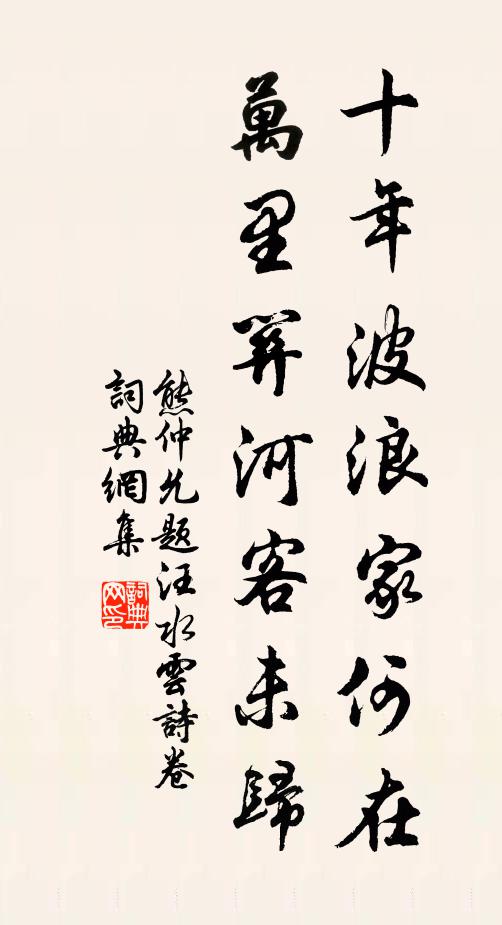 十年波浪家何在
萬里關河客未歸
熊仲允題汪水雲詩卷
詞典網集
詞典網印